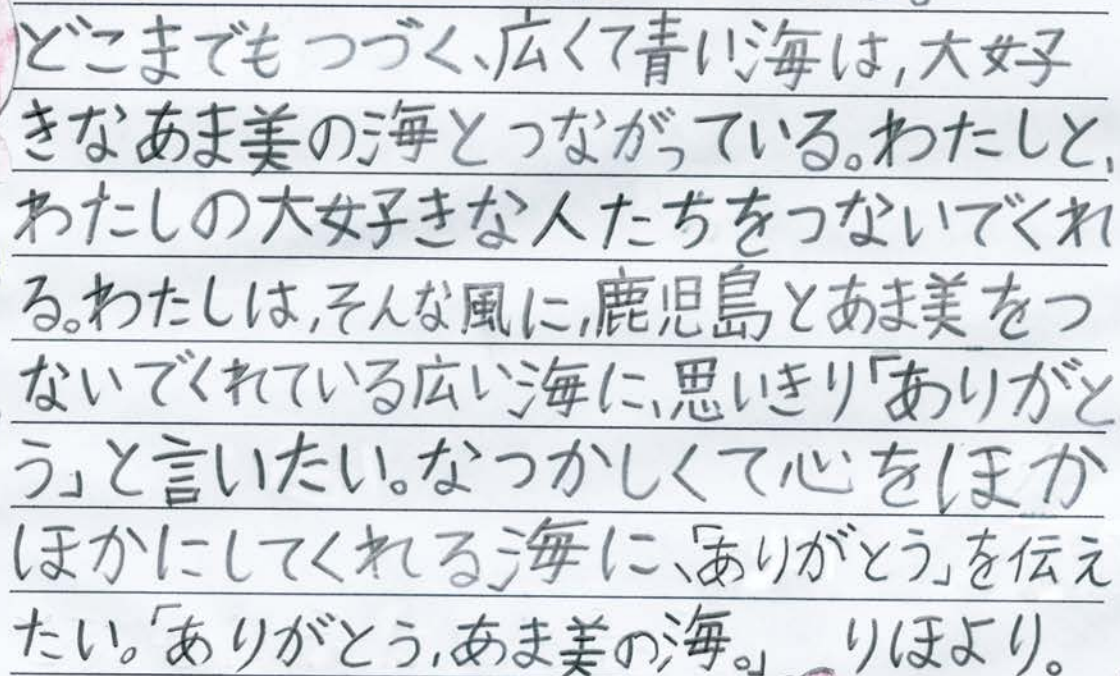 どこまでもつづく、広くて青い海は,大好
きなあま美の海とつながっている。わたしと、
わたしの大好きな人たちをつないでくれ
る。わたしは,そんな風に,鹿児島とあま美をつ
ないでくれている広い海に、思いきり「ありがと
う」と言いたい。なつかしくて心をほか
ほかにしてくれる海に、「ありがとう」を伝え
たい。「ありがとう,あま美の海。」 りほより。